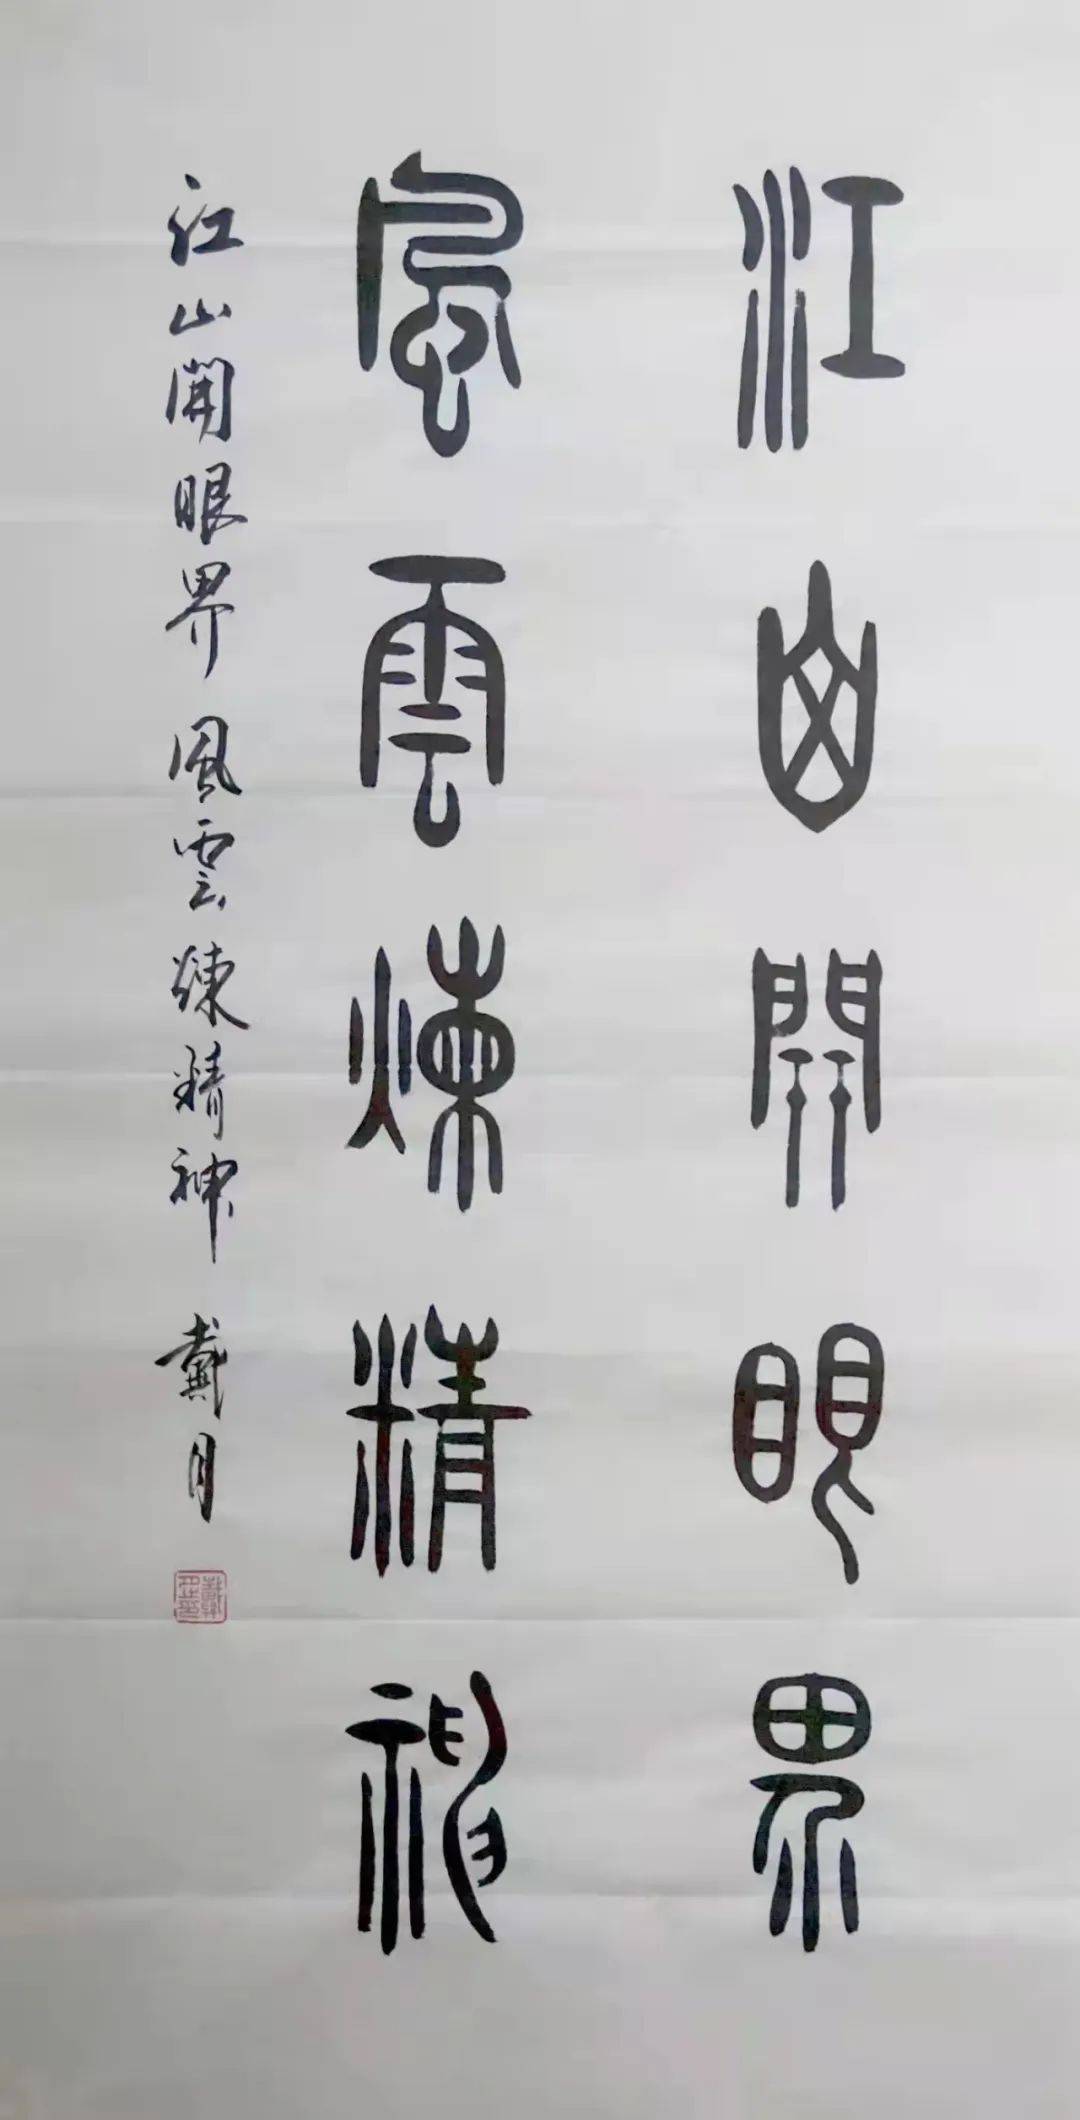 江山開眼界
風雲煉精神
江山開眼界風雲煉精神 戴月